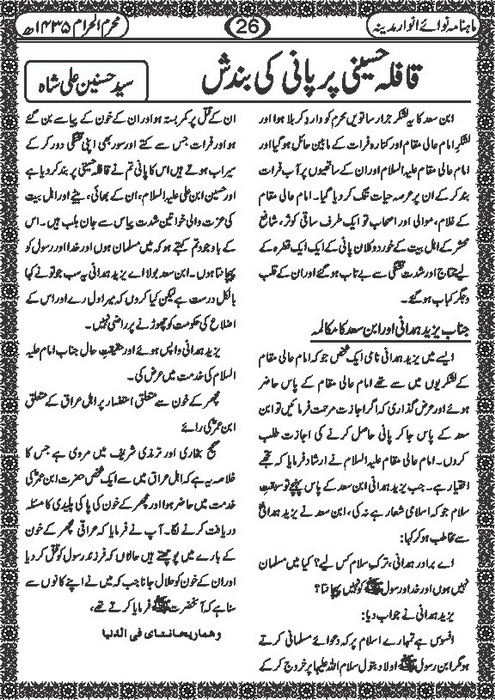 ماہنامہ نوائے انوار مدینہ
26
محرم الحرام ۱۴۳۵ھ
قافلہ حسینی پر پانی کی بندش
سید حسنین علی شاہ
ابن سعد کا یہ لشکر جرار ساتویں محرم کو وارد کربلا ہوا اور
لشکر امام عالی مقام اور کنارہ فرات کے مابین حائل ہو گیا اور
امام عالی مقام علیہ السلام اور ان کے ساتھیوں پر آب فرات
بند کر کے ان پر عرصہ حیات تنگ کر دیا گیا۔ امام عالی مقام
کے غلام، موالی اور اصحاب تو ایک طرف ساقی کوثر، شافع
محشر کے اہل بیت کے خورد و کلاں پانی کے ایک ایک قطرہ کے
لیے محتاج اور شدت تشنگی سے بے تاب ہو گئے اور ان کے قلب
و جگر کباب ہو گئے۔
جناب یزید ہمدانی اور ابن سعد کا مکالمہ
ایسے میں یزید ہمدانی نامی ایک شخص جو کہ امام عالی مقام
کے لشکریوں میں سے تھے امام عالی مقام کے پاس حاضر
ہوئے اور عرض گذاری کہ اگر اجازت مرحمت فرمائیں تو ابن
سعد کے پاس جا کر پانی حاصل کرنے کی اجازت طلب
کروں۔ امام عالی مقام علیہ السلام نے ارشاد فرمایا کہ تجھے
اختیار ہے۔ جب یزید ہمدانی ابن سعد کے پاس پہنچے تو سنت
سلام جو کہ اسلامی شعار ہے نہ کی، ابن سعد نے یزید ہمدانی
سے مخاطب ہو کر کہا:
اے برادر ہمدانی، ترک سلام کس لیے؟ کیا میں مسلمان
نہیں ہوں اور خدا و رسول ﷺ کو نہیں پہچانتا؟
یزید ہمدانی نے جواب دیا:
افسوس ہے تمہارے اسلام پر کہ دعوائے مسلمانی کرتے
ہو مگر ابن رسول ﷺ اولاد بتول سلام اللہ علیہا پر خروج کر کے
ان کے قتل پر کمر بستہ ہو اور ان کے خون کے پیاسے بن گئے
ہو اور فرات جس سے کتے اور سور بھی اپنی تشنگی دور کر کے
سیراب ہوتے ہیں اس کا پانی تم نے قافلہ حسینی پر بند کر دیا ہے
اور حسین ابن علی علیہ السلام، ان کے بھائی، بیٹے اور اہل بیت
کی عزت والی خواتین شدت پیاس سے جان بلب ہیں۔ اس
کے باوجود تم کہتے ہو کہ میں مسلمان ہوں اور خدا اور رسول کو
پہچانتا ہوں۔ ابن سعد بولا اے یزید ہمدانی یہ سب جو تو نے کہا
بالکل درست ہے لیکن کیا کروں کہ میرا دل رے اور اس کے
اضلاع کی حکومت کو چھوڑنے پر راضی نہیں۔
یزید ہمدانی واپس ہوئے اور حقیقت حال جناب امام علیہ
السلام کی خدمت میں عرض کی۔
مچھر کے خون سے متعلق استفسار پر اہل عراق کے متعلق
ابن عمرؓ کی رائے
صحیح بخاری اور ترمذی شریف میں مروی ہے جس کا
خلاصہ یہ ہے کہ اہل عراق میں سے ایک شخص حضرت ابن عمرؓ کی
خدمت میں حاضر ہوا اور مچھر کے خون کی پاکی پلیدی کا مسئلہ
دریافت کرنے لگا۔ آپ نے فرمایا کہ عراقی مچھر کے خون
کے بارے میں پوچھتے ہیں حالانکہ فرزند رسول کو قتل کر دیا
اور ان کے خون کو حلال جانا جب کہ میں نے اپنے کانوں سے
سنا ہے کہ آنحضرت ﷺ فرمایا کرتے تھے،
وهما ريحانتاى فى الدنيا